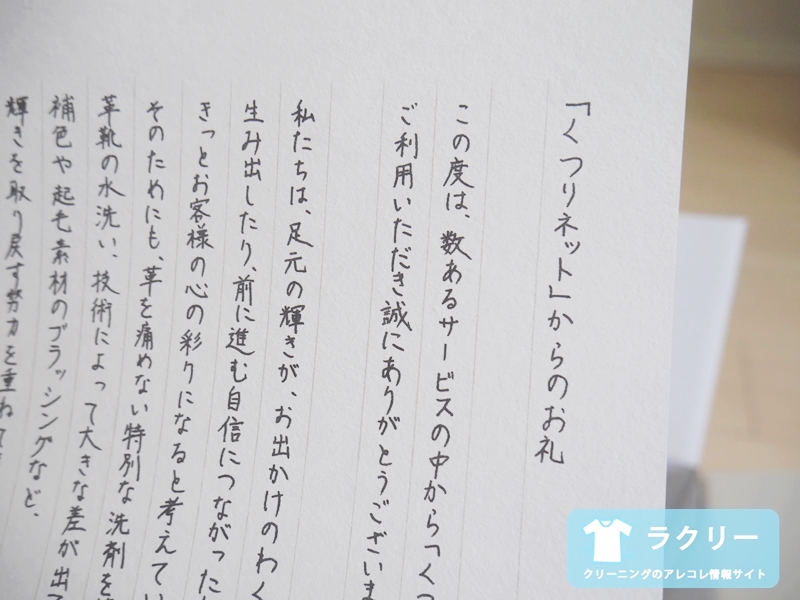 「くつリネット」からのお礼
この度は、数あるサービスの中から「くつ
ご利用いただき誠にありがとうございま
私たちは、足元の輝きが、お出かけのわく
生み出したり、前に進む自信につながった
きっとお客様の心の彩りになると考えてい
そのためにも、革を痛めない特別な洗剤を
革靴の水洗い、技術によって大きな差が出て
補色や起毛素材のブラッシングなど、
輝きを取り戻す努力を重ねて
ラクリー
クリーニングのアレコレ情報サイト